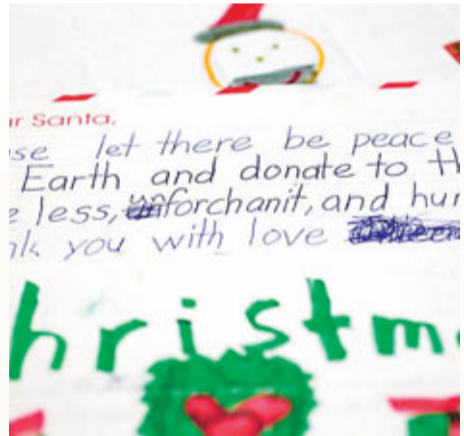 ar Santa,
ase let there be peace
Earth and donate to th
e less, unforchanit, and hun
nk you with love
hristma